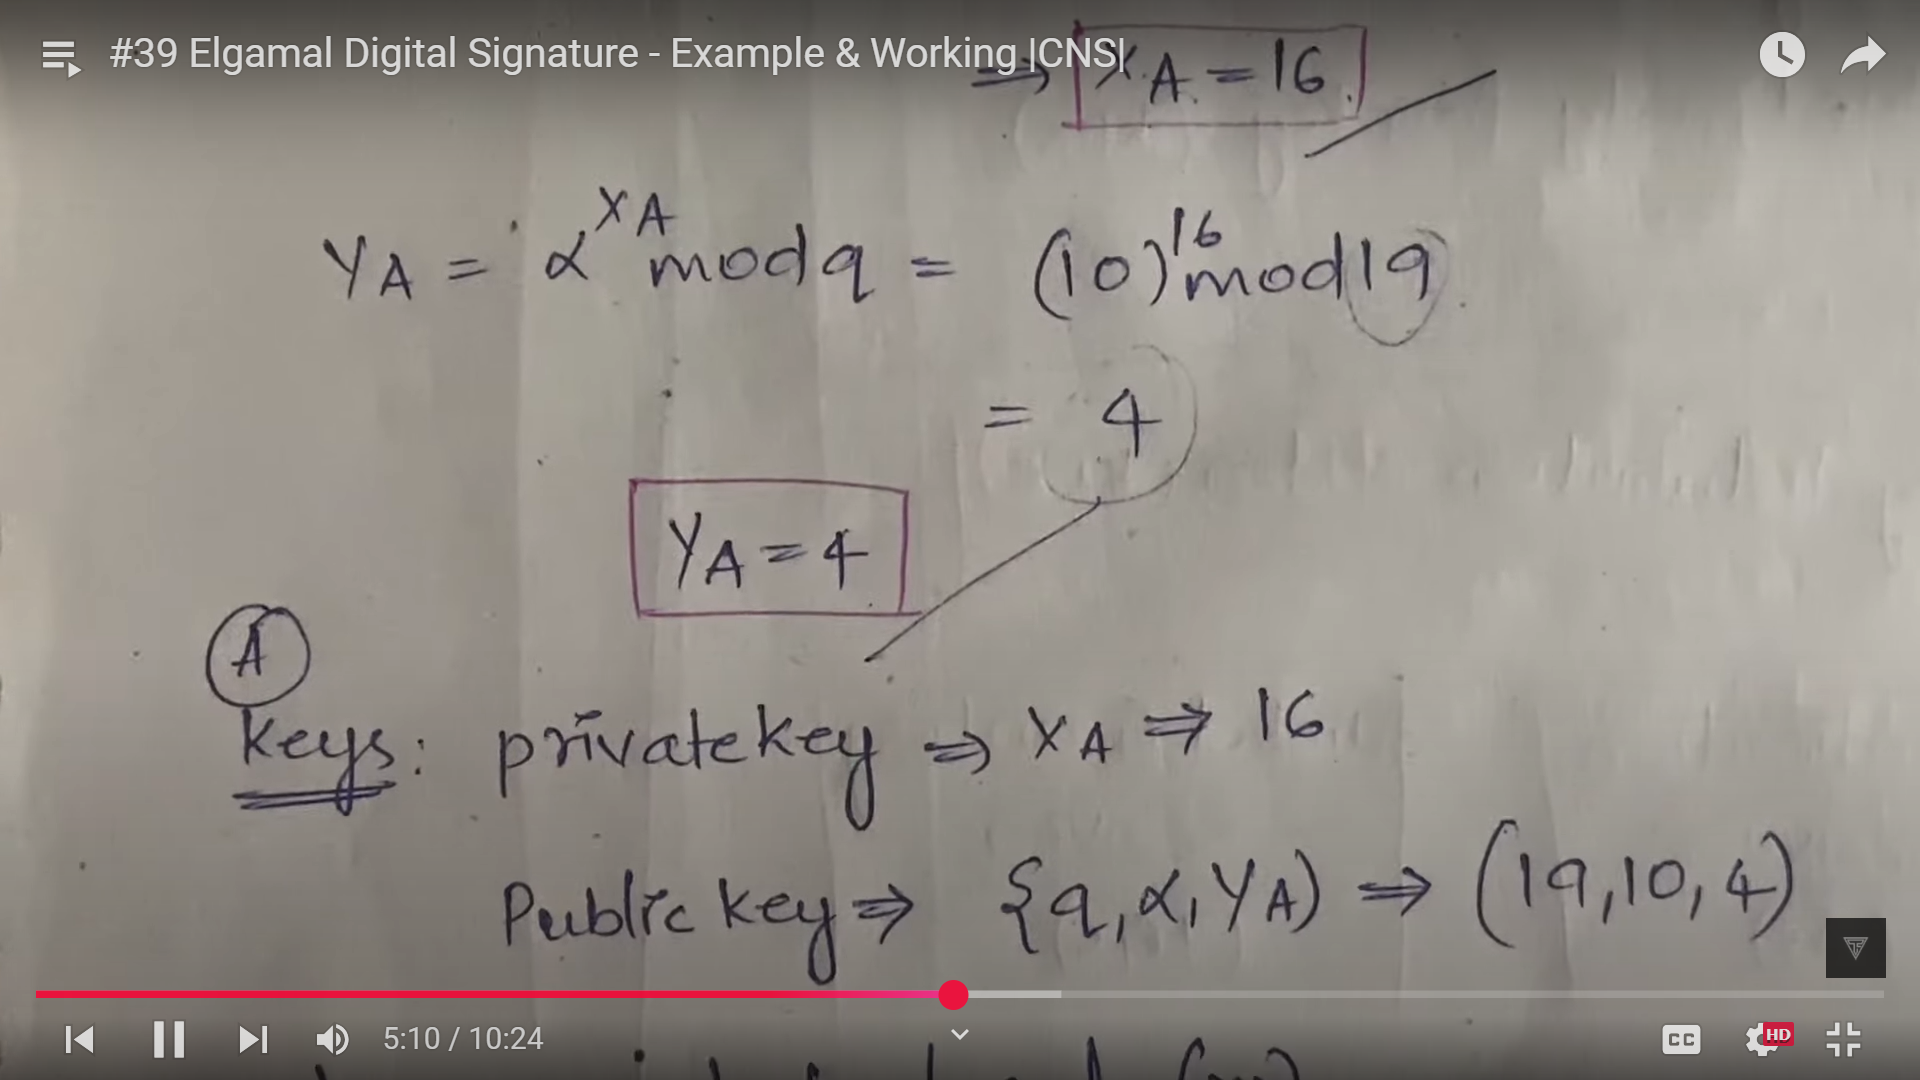 #39 Elgamal Digital Signature - Example & Working |CNS|
⇒ XA = 16
YA = α^XA mod q = (10)^16 mod 19
= 4
YA = 4
A
keys: private key ⇒ XA ⇒ 16
Public key ⇒ {q, α, YA) ⇒ (19, 10, 4)
5:10 / 10:24
CC
HD